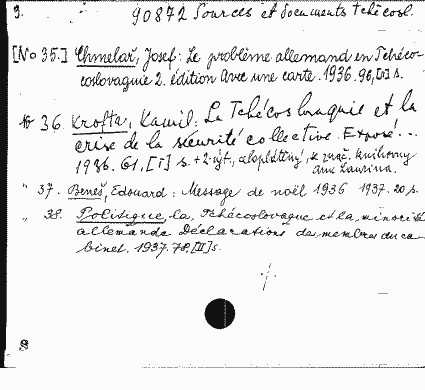 9. 90872 Sources et documents tchécosl.
[No 35.] Chmelař, Josef: Le problème allemand en Tchéco-
coslovaquie 2. édition Avec une carte. 1936. 96, [I] s.
36. Krofta, Kamil: La Tchécoslovaquie et la
crise de la sécurité collective. Exposé...
1936. 61, [I] s. + 2 výt., a k znač. knihovny
Laurina.
" 37. Beneš, Edouard: Message de noël 1936 1937. 20 s.
" 38. Politique, la, Tchécoslovaque et la minorité
allemande Déclarations de membres du ca-
binet. 1937. 78, [II] s.
./.
8